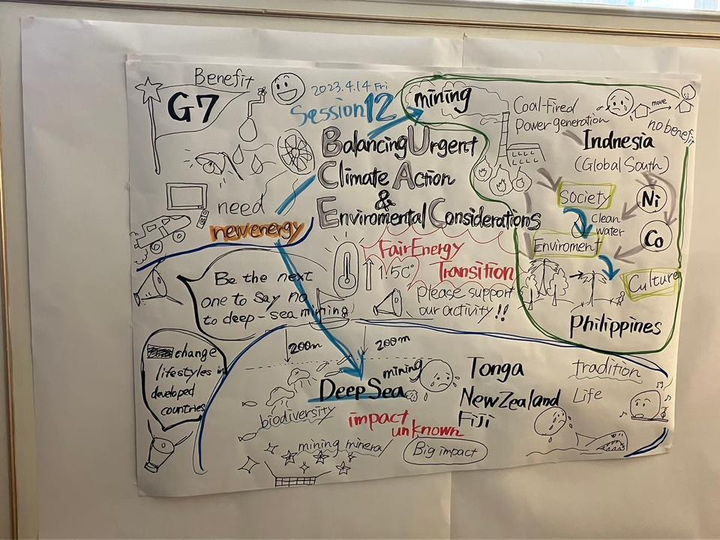 Benefit
G7
2023.4.14 Fri
Session12
mining
Coal-Fired
Power generation
move
no benefit
Balancing Urgent
Climate Action
&
Enviromental Considerations
Indnesia
(Global South)
Society
Clean
water
Enviroment
Culture
Ni
Co
Philippines
need
new energy
Fair Energy
Transition
1.5℃
Please support
our activity!!
Be the next
one to say no
to deep-sea mining
change
lifestyles in
developed
countries
200m
200m
mining
Deep Sea
biodiversity
impact
unknown
mining mineral
Big impact
Tonga
New Zealand
Fiji
tradition
Life